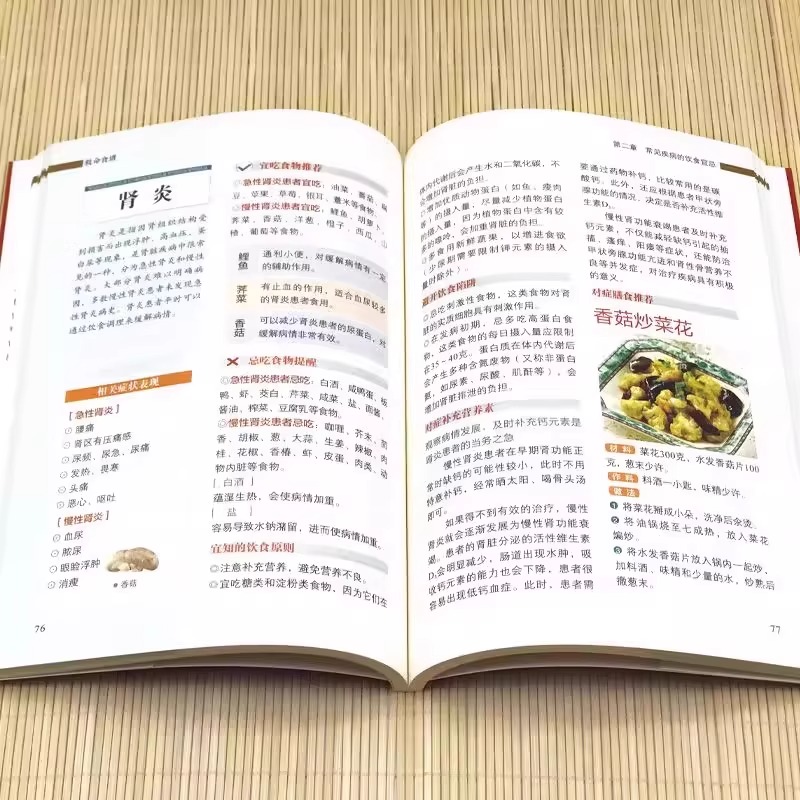 救命食谱
肾炎
肾炎是指因肾组织结构受
到损害而出现浮肿、高血压、蛋
白尿等现象,是肾脏疾病中很常
见的一种,分为急性肾炎和慢性
肾炎。大部分肾炎难以明确病
因,多数慢性肾炎者未发现急
性肾炎病史。肾炎患者平时可以
通过饮食调理来缓解病情。
相关症状表现
[急性肾炎]
⊙腰痛
⊙肾区有压痛感
⊙尿频、尿急、尿痛
⊙发热、畏寒
⊙头痛
⊙恶心、呕吐
[慢性肾炎]
⊙血尿
⊙脓尿
⊙眼睑浮肿
⊙消瘦
●香菇
76
宜吃食物推荐
◎急性肾炎患者宜吃:油菜、番茄、扁
豆、苹果、草莓、银耳、薏米等食物。
◎慢性肾炎患者宜吃:鲤鱼、胡萝卜、
荠菜、香菇、洋葱、橙子、西瓜、山
楂、葡萄等食物。
鲤鱼 通利小便,对缓解病情有一定
的辅助作用。
荠菜 有止血的作用,适合血尿较多
的肾炎患者食用。
香菇 可以减少肾炎患者的尿蛋白,对
缓解病情非常有效。
忌吃食物提醒
◎急性肾炎患者忌吃:白酒、咸鸭蛋、板
鸭、虾、茭白、芹菜、咸菜、盐、面酱、
酱油、榨菜、豆腐乳等食物。
◎慢性肾炎患者忌吃:咖喱、芥末、茴
香、胡椒、葱、大蒜、生姜、辣椒、肉
桂、花椒、香椿、虾、皮蛋、肉类、动
物内脏等食物。
[白酒]
蕴湿生热,会使病情加重。
[盐]
容易导致水钠潴留,进而使病情加重。
宜知的饮食原则
◎注意补充营养,避免营养不良。
◎宜吃糖类和淀粉类食物,因为它们在
第二章 常见疾病的饮食宜忌
体内代谢后会产生水和二氧化碳,不
会增加肾脏的负担。
◎增加优质动物蛋白(如鱼、瘦肉
等)的摄入量,尽量减少植物蛋白
的摄入量,因为植物蛋白中含有较
多的嘌呤,会加重肾脏的负担。
◎多食用新鲜蔬果,以增进食欲
(少尿期需要限制钾元素的摄入
量时除外)。
避开饮食陷阱
◎忌吃刺激性食物,这类食物对肾
脏的实质细胞具有刺激作用。
◎在发病初期,忌多吃高蛋白食
物,这类食物的每日摄入量应限制
在35～40克。蛋白质在体内代谢后
会产生多种含氮废物(又称非蛋白
氮,如尿素、尿酸、肌酐等),会
增加肾脏排泄的负担。
对症补充营养素
观察病情发展,及时补充钙元素是
肾炎患者的当务之急
慢性肾炎患者在早期肾功能正
常时缺钙的可能性较小,此时不用
特意补钙,经常晒太阳、喝骨头汤
即可。
如果得不到有效的治疗,慢性
肾炎就会逐渐发展为慢性肾功能衰
竭。患者的肾脏分泌的活性维生素
D₃会明显减少,肠道出现水肿,吸
收钙元素的能力也会下降,患者很
容易出现低钙血症。此时,患者需
要通过药物补钙,比较常用的是碳
酸钙。此外,还应根据患者甲状旁
腺功能的情况,决定是否补充活性维
生素D₃。
慢性肾功能衰竭患者及时补充
钙元素,不仅能减轻缺钙引起的抽
搐、瘙痒、阳痿等症状,还能防治
甲状旁腺功能亢进和肾性骨营养不
良等并发症,对治疗疾病具有积极
的意义。
对症膳食推荐
香菇炒菜花
材料 菜花300克,水发香菇片100
克,葱末少许。
作料 料酒一小匙,味精少许。
做法
1 将菜花掰成小朵,洗净后余烫。
2 将油锅烧至七成热,放入菜花
煸炒。
3 将水发香菇片放入锅内一起炒,
加料酒、味精和少量的水,炒熟后
撒葱末。
77